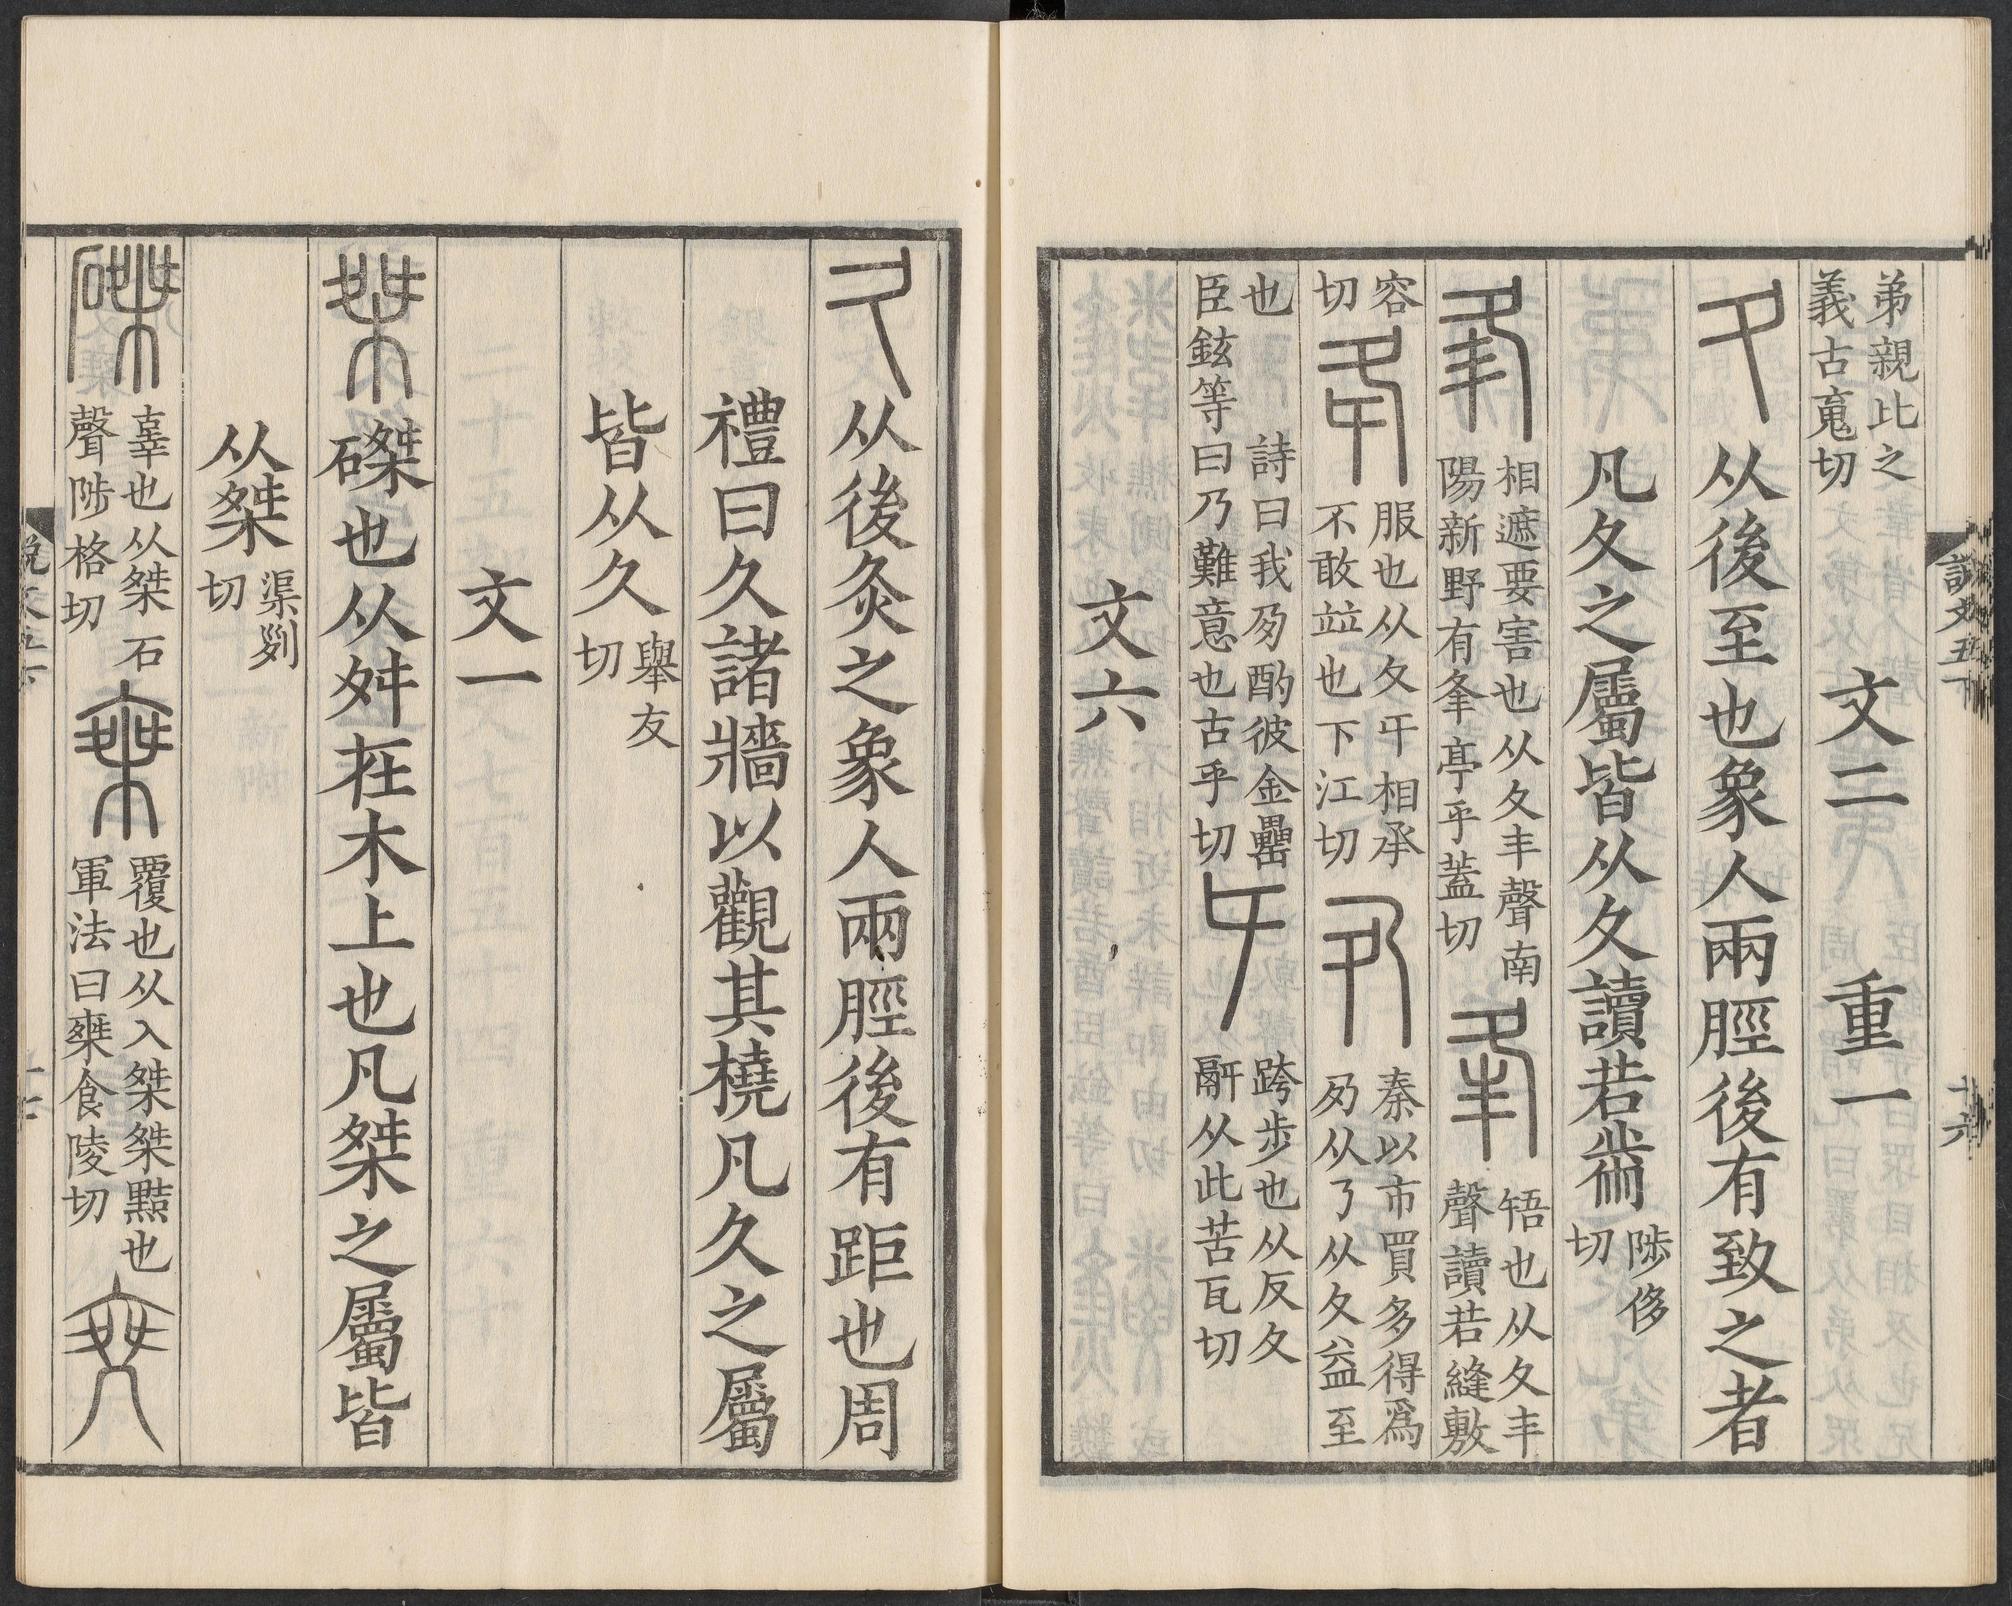 弟親比之
義古䰟切
文二 重一
夂 从後至也象人兩脛後有致之者
凡夂之屬皆从夂讀若黹 陟侈
切
夆 相遮要害也从夂丰聲南
陽新野有夆亭乎蓋切
夆 啎也从夂丰
聲讀若縫敷
容
切
夅 服也从夂㐄相承
不敢竝也下江切
夃 秦以市買多得爲
夃从了从夂益至
也 詩曰我夃酌彼金罍
臣鉉等曰乃難意也古乎切
㐄 跨步也从反夂
𨛭从此苦瓦切
文六
說文五下
十六
久 从後灸之象人兩脛後有距也周
禮曰久諸牆以觀其橈凡久之屬
皆从久 舉友
切
文一
桀 磔也从舛在木上也凡桀之屬皆
从桀 渠列
切
磔 辜也从桀石
聲陟格切
椉 覆也从入桀桀黠也
軍法曰椉食陵切
說文五下